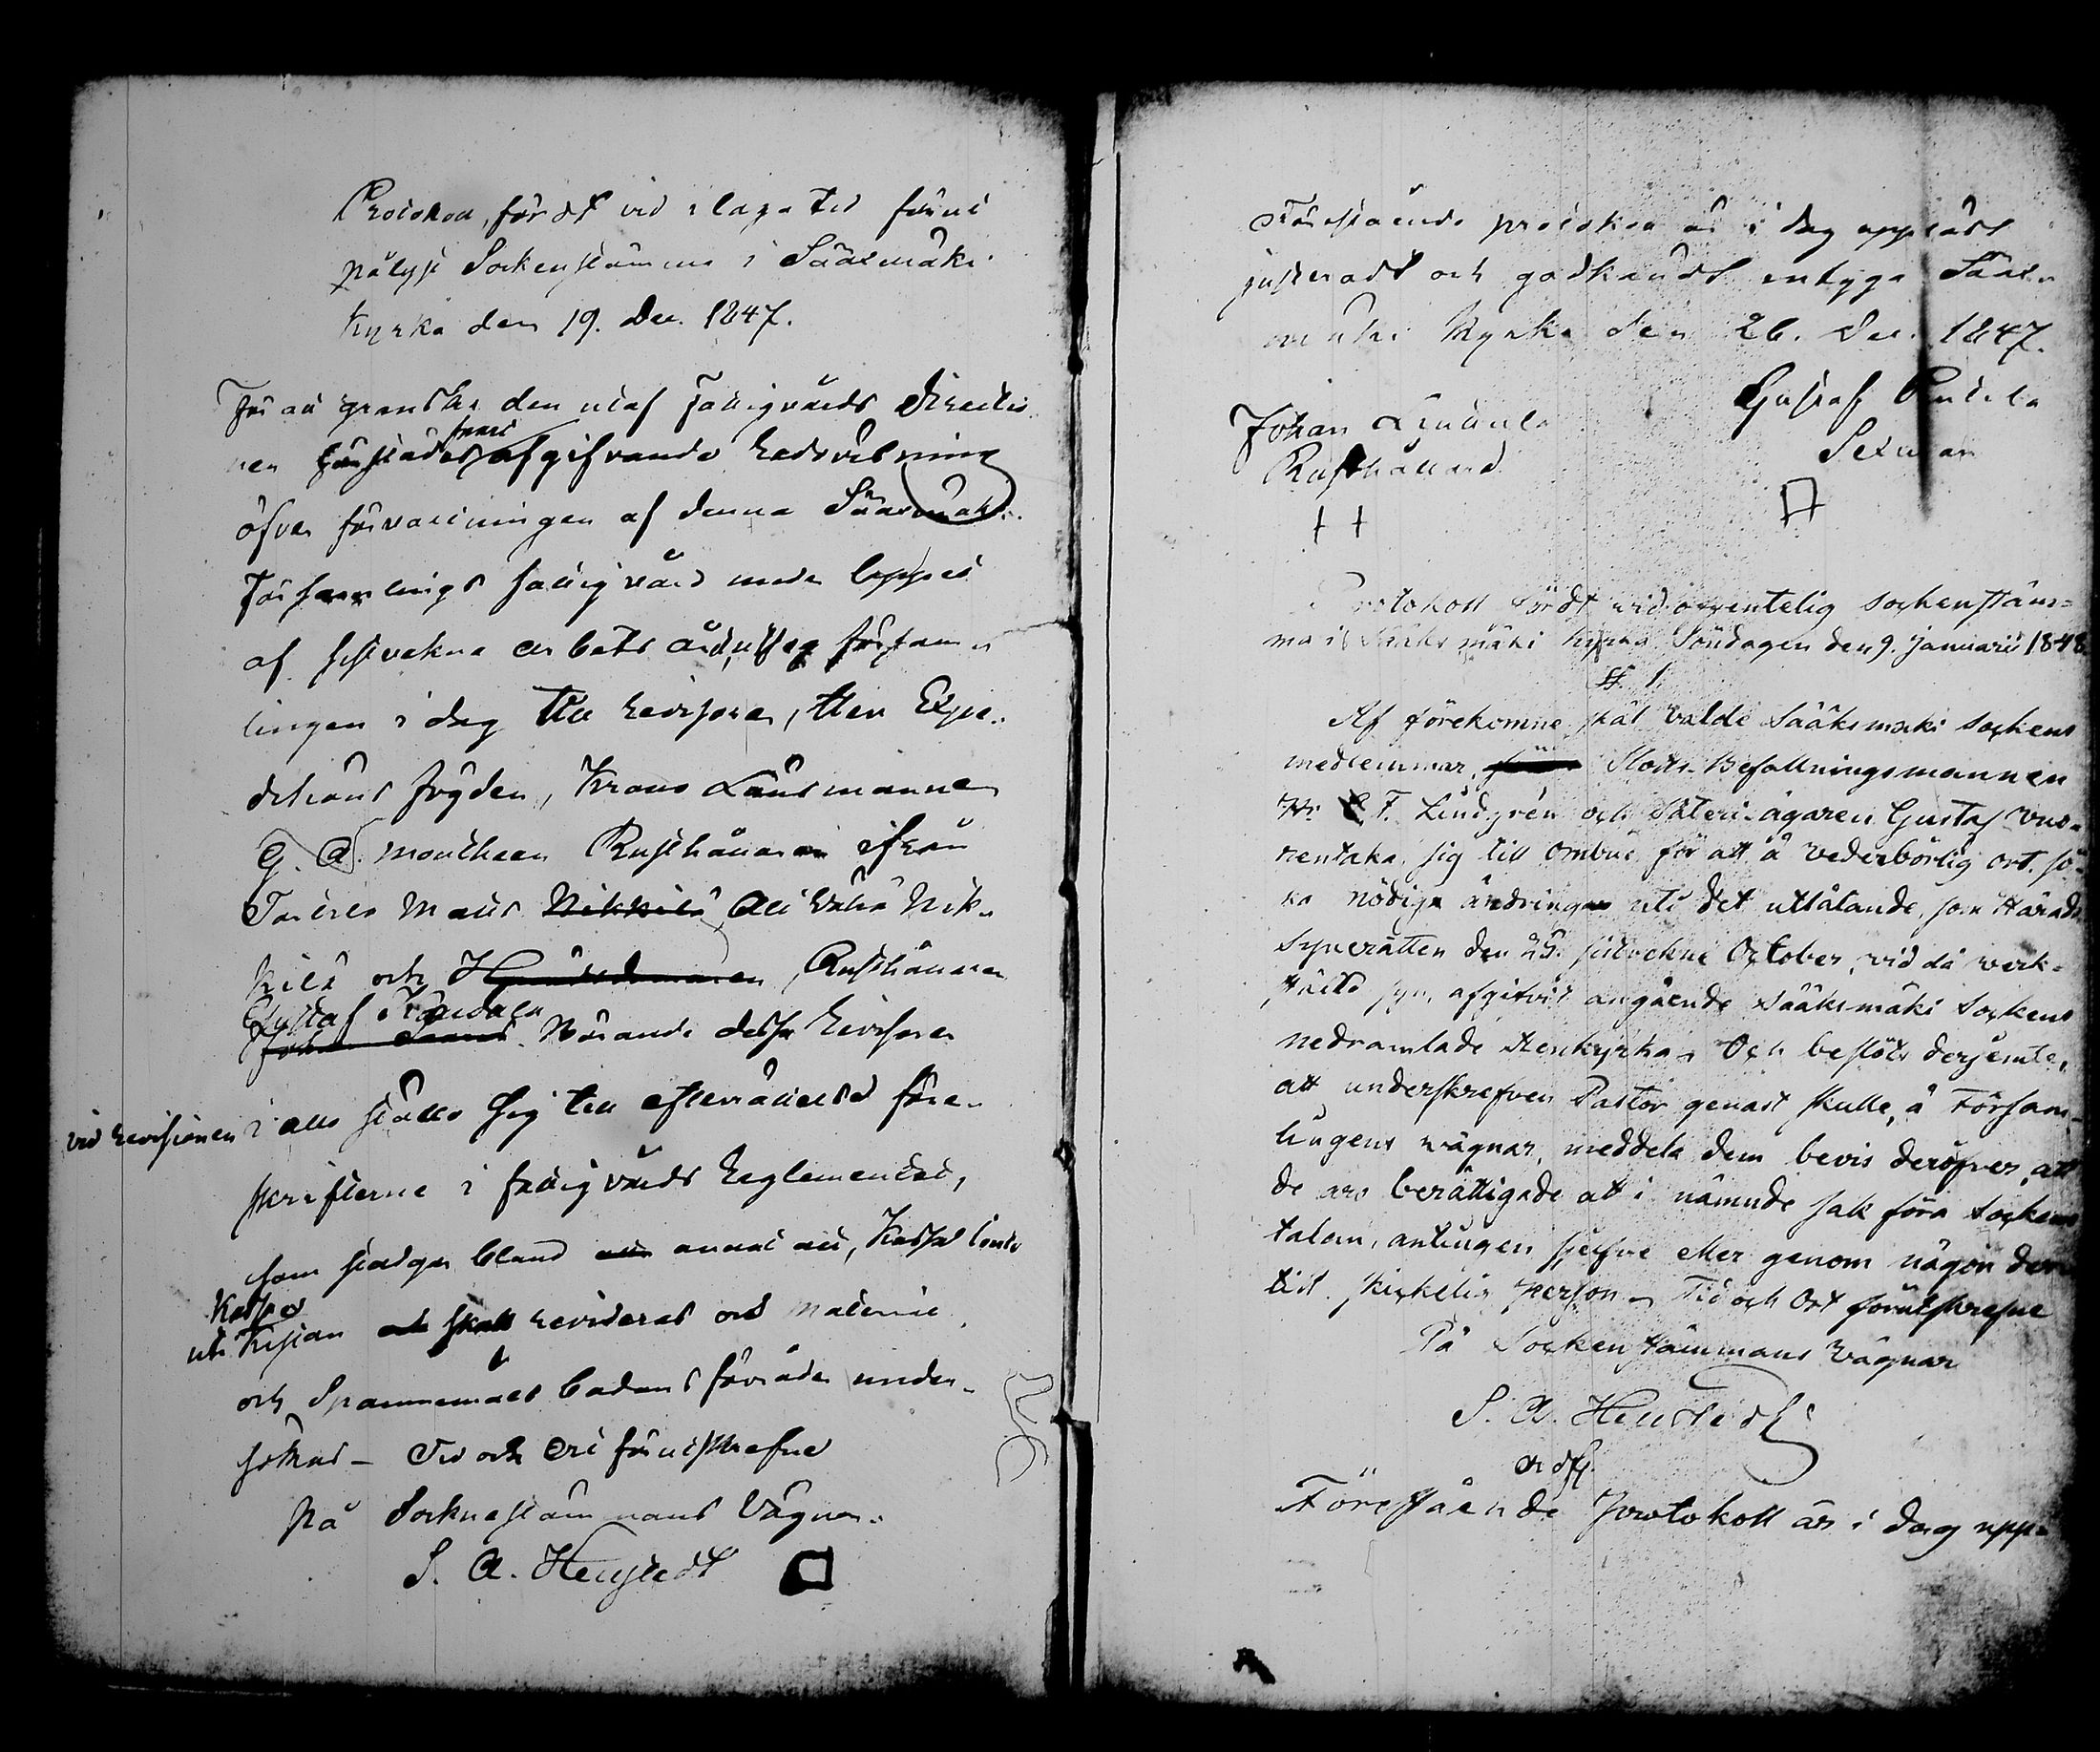 Protokoll, fördt vid i laga tid förut
pålyst Sockenstämma i Sääxmäki
Kyrka den 19. Dec. 1847.
För att granska den utaf Fattigvårds Directio-
nen afgifvande Redovisning
öfver förvaltningen af denna Sääxmäki
Församlings fattigvård under loppet
af sistvekne arbets år, utsåg försam-
lingen i dag till revisorer, Herr Expe-
ditions fogden, Krono Länsmannen
G. A. Montheen Rusthållaren ifrån
Tarttila Matts Nikkilä Ali Väliä Nik-
kilä och Rusthållaren
Gustaf
Johan. Börande desse Revisorer
vid revisionen i allo ställa sig till efterrättelse före-
skrifterne i fattigvårds Reglementet,
som stadgar bland alt annat att, Kassa
Kassa
uti Kistan och skall revideras och
och Spannemåls bodens förråder under-
sökas – Tid och ort förutskrefne
På Sockneståmmans Vägnar.
S. A. Hengstedt
Förestående protokoll är i dag uppläst
justeradt och godkändt intyga Sääx-
mäki Kyrka den 26. Dec. 1847.
Johan
Rusthållare
Gustaf
Sexman
Protokoll fördt vid offentelig sockenstäm-
ma i Sääksmäki kyrka Söndagen den 9. Januarii 1848
§. 1.
Af förekomne skäl valde Sääksmäki sockens
medlemmar, Slotts-Befallningsmannen
Hr F. Lindgrén och Säteri-ägaren Gustaf Vuo-
rentaka sig till Ombud för att å vederbörlig ort sö-
ka nödiga ändringar uti det utlåtande, som Härads
Synerätten den 25. sistvekne October, vid då werk-
stäld syn, afgifvit angående Sääksmäki Sockens
nedramlade Stenkyrka – Och beslöts derjemte,
att underskrefven Pastor genast skulle, å Försam-
lingens vägnar, meddela dem bevis deröfver, att
de äro berättigade att i nämnde sak föra Sockens
talan, antingen sjelfve eller genom någon der-
till skickelig person – Tid och Ort förutskrefne
På Sockenstämmans Vägnar
S. A. Hengstedt
Förestående Protokoll är i dag upp-